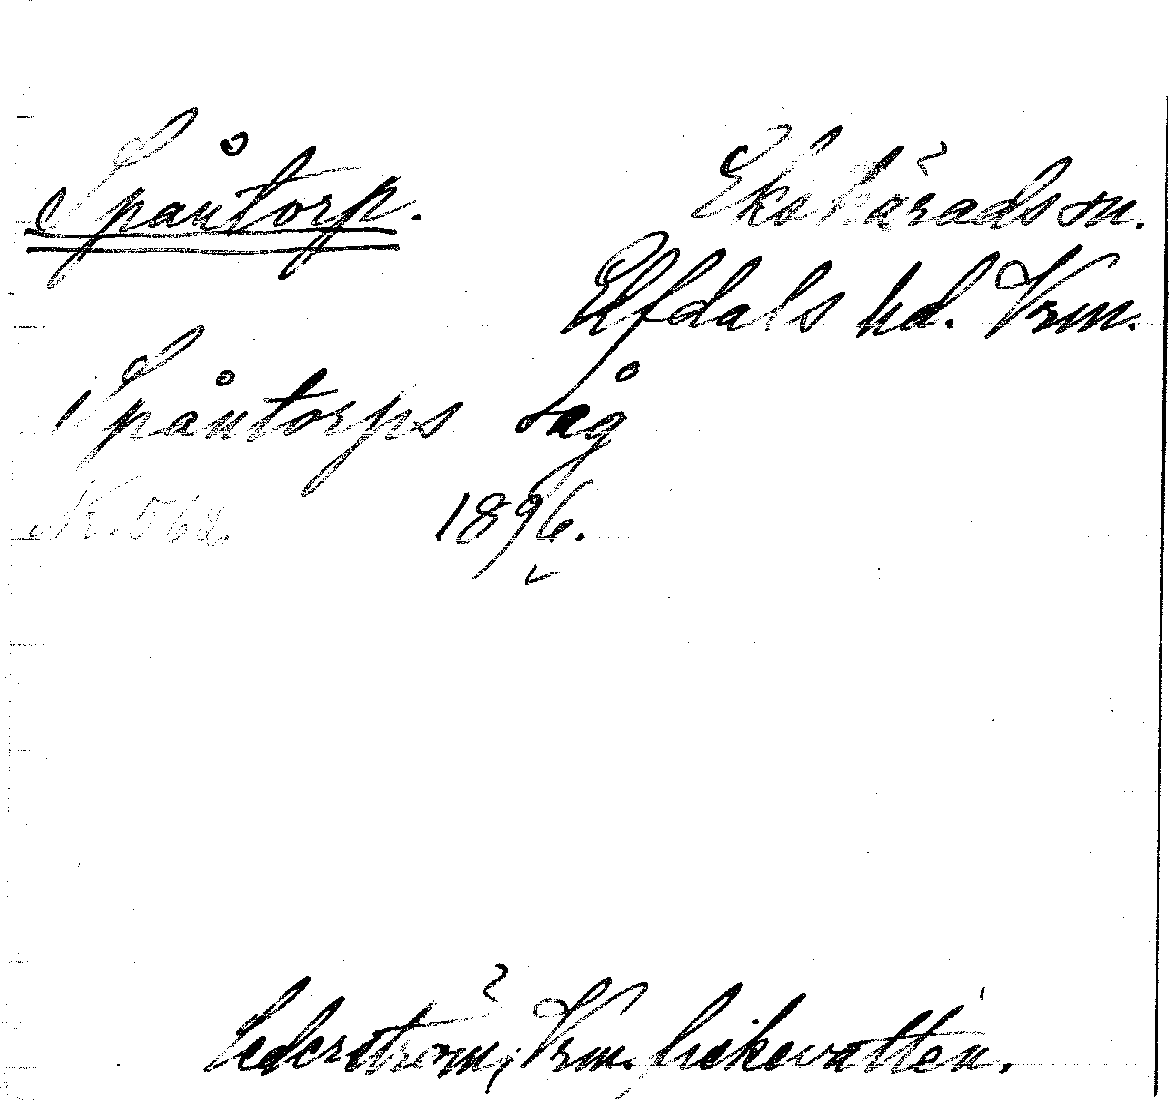 Spåntorp.
Ekshärads sn.
Elfdals hd. Vrm.
Spåntorps såg
N. 562. 1896.
Cederström, Vrm. fiskevatten.